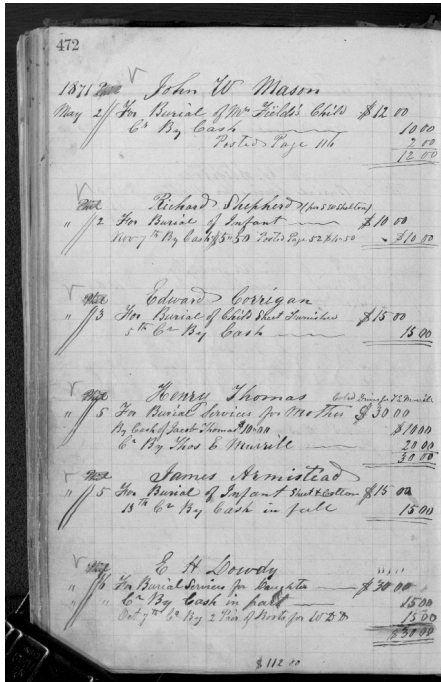 472
1871 John W Mason
May 2 For Burial of Mrs Field's Child $12 00
Cr By Cash 10 00
Posted Page 116 2 00
12 00
Richard Shepherd (for S W Shelton)
" 2 For Burial of Infant $10 00
Nov 7th By Cash $5.50 Posted Page 52 $4.50 $10 00
Edward Corrigan
" 3 For Burial of Child Sheet Furnished $15 00
5th Cr By Cash 15 00
Henry Thomas
" 5 For Burial Services for Mother $30 00
By Cash of Jacob Thomas 10.00 $10 00
Cr By Thos E Murrill 20 00
30 00
James Armistead
" 5 For Burial of Infant Sheet & Cotton $15 00
13th Cr By Cash in full 15 00
E H Dowdy
" 6 For Burial Services for Daughter $30 00
" " Cr By Cash in part 15 00
Oct 7th Cr By 2 Pair of Boots for W D D 15 00
$30 00
$112 00